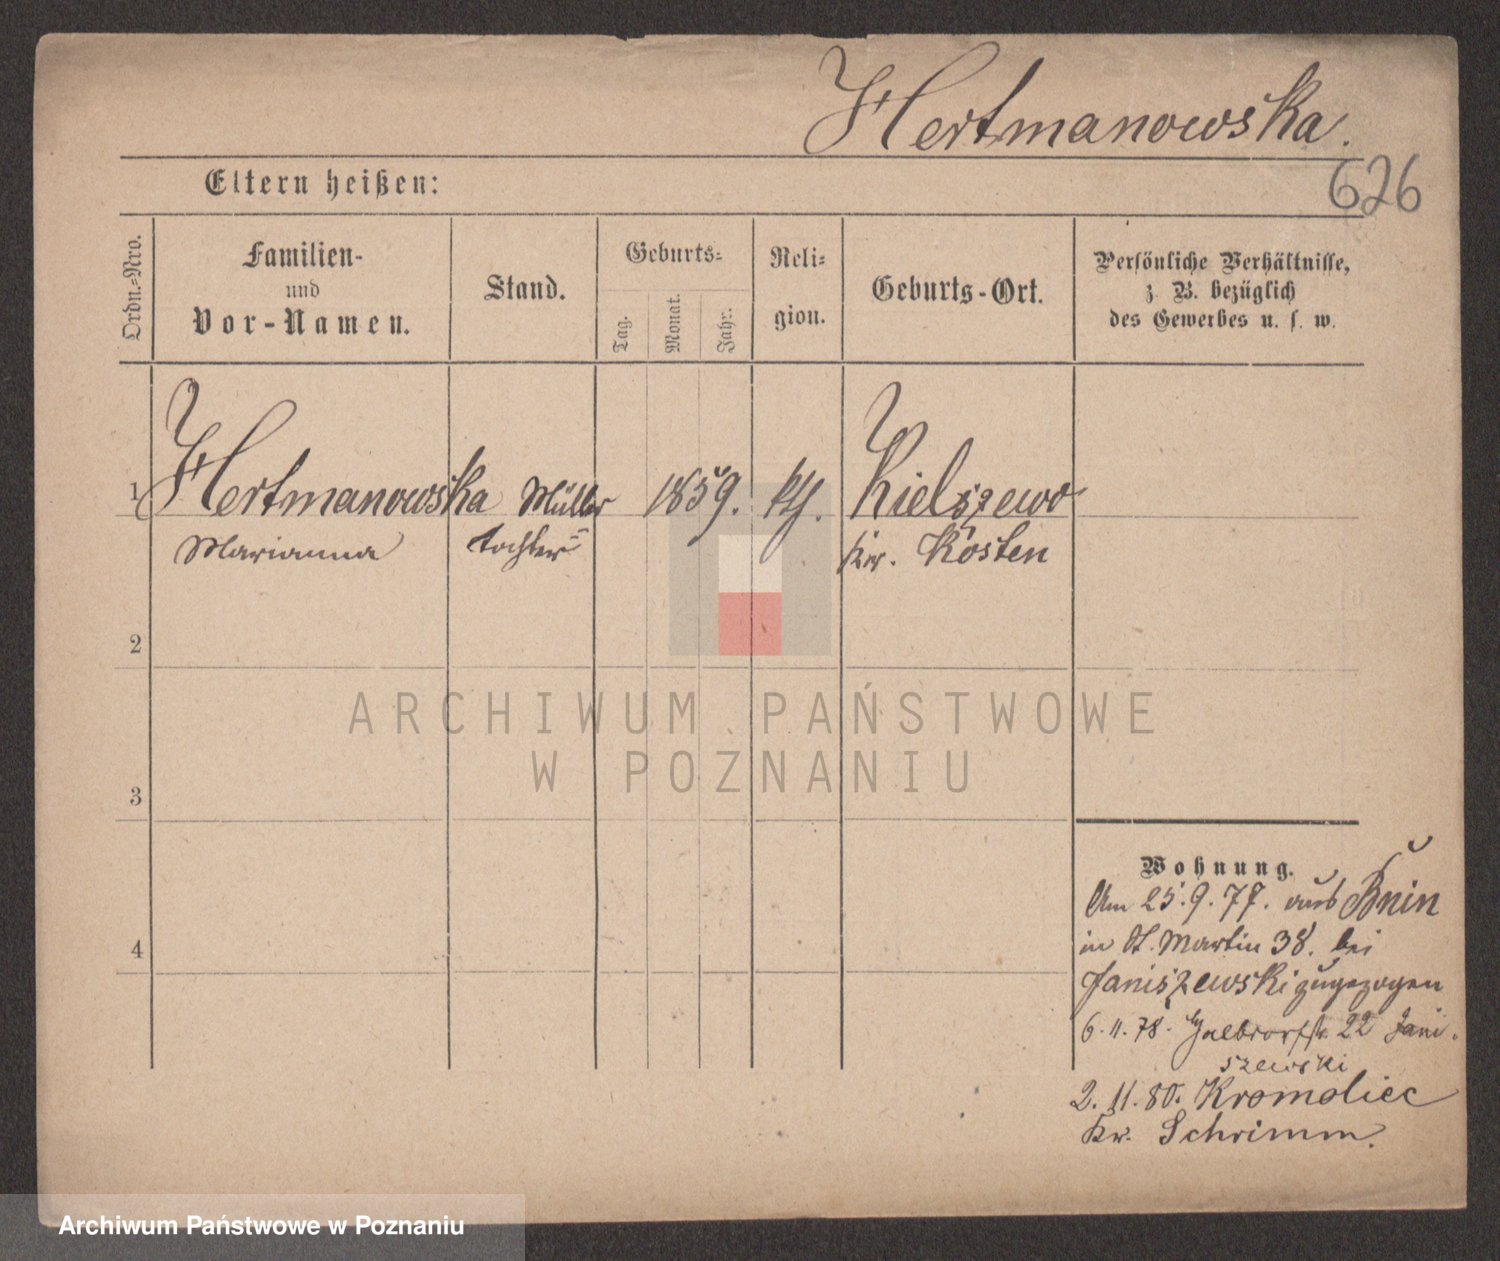 Hertmanowska.
626
Eltern heißen:
Ordn.-Nro.
Familien-
und
Vor-Namen.
Stand.
Geburts-
Tag.
Monat.
Jahr.
Reli-
gion.
Geburts-Ort.
Persönliche Verhältnisse,
z. B. bezüglich
des Gewerbes u. s. w.
1 Hertmanowska Müller 1859. kth. Kielszewo
Marianna tochter Kr. Kosten
2
3
4
Wohnung.
Am 25.9.77. aus Bnin
in St. Martin 38. bei
Janiszewski zugezogen
6.11.78. 22 Jani-
szewski
2.11.80. Kromolice
Kr. Schrimm.
ARCHIWUM PAŃSTWOWE
W POZNANIU
Archiwum Państwowe w Poznaniu